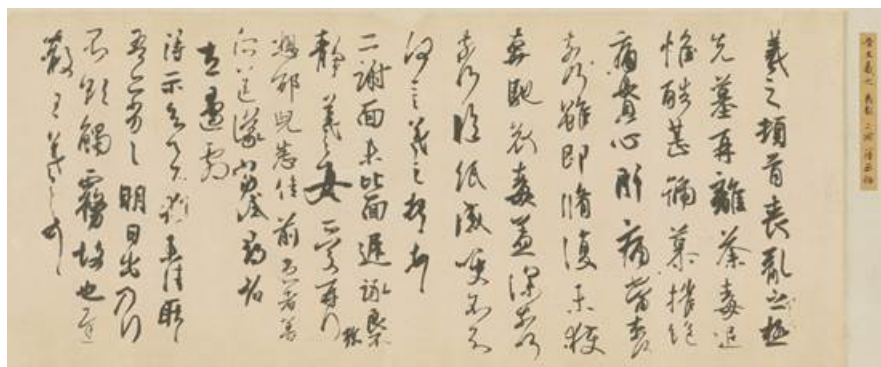 晉王羲之 喪亂 二謝 得示帖
羲之頓首喪亂之極
先墓再離荼毒追
惟酷甚號慕摧絕
痛貫心肝痛當奈何
奈何雖即脩復未獲
奔馳哀毒益深奈何
奈何臨紙感哽不知
何言羲之頓首頓首
二謝面未比面遲詠良
靜羲之女愛再拜
想邰兒悉佳前患者善
所送議當試尋省
左邊劇
得示知足下猶未佳耿
吾亦劣劣明日出乃行
不欲觸霧故也遲
散王羲之頓首